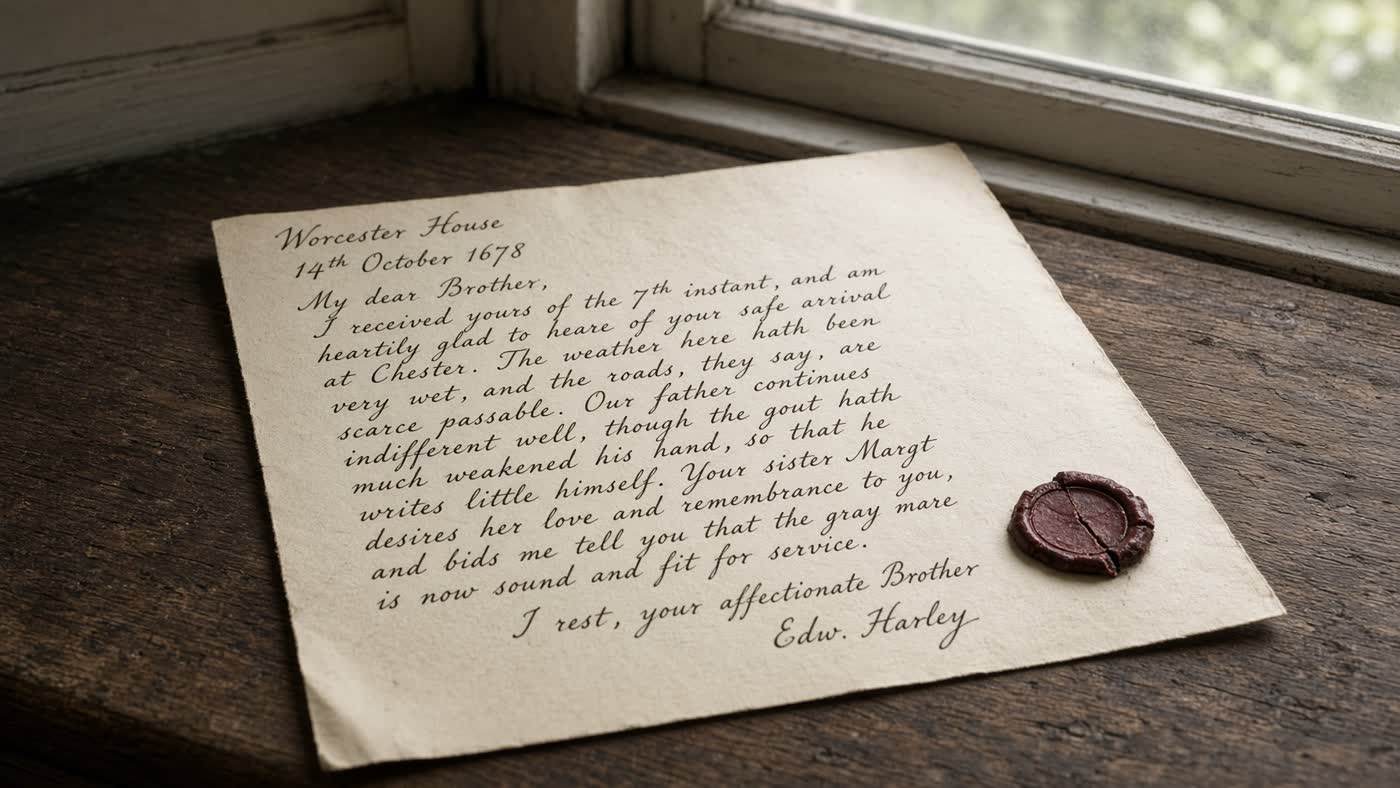 Worcester House
14th October 1678
My dear Brother,
I received yours of the 7th instant, and am
heartily glad to heare of your safe arrival
at Chester. The weather here hath been
very wet, and the roads, they say, are
scarce passable. Our father continues
indifferent well, though the gout hath
much weakened his hand, so that he
writes little himself. Your sister Margt
desires her love and remembrance to you,
and bids me tell you that the gray mare
is now sound and fit for service.
I rest, your affectionate Brother
Edw. Harley